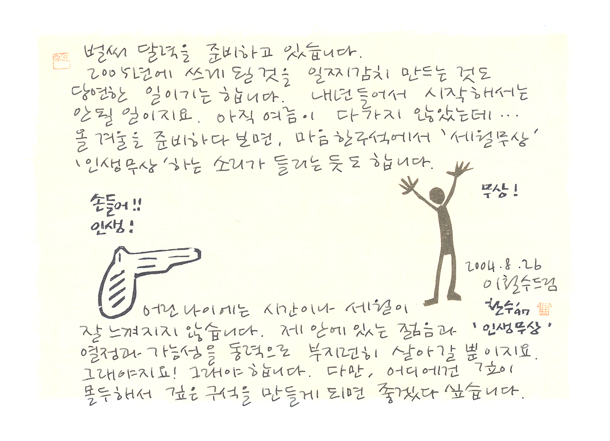 벌써 달력을 준비하고 있습니다.
2005년에 쓰게 될 것을 일찌감치 만드는 것도
당연한 일이기는 합니다. 내년들어서 시작해서는
안될 일이지요. 아직 여름이 다 가지 않았는데...
올 겨울을 준비하다 보면, 마음 한구석에서 '세월무상'
'인생무상' 하는 소리가 들리는 듯도 합니다.
손들어!!
인생!
무상!
2004.8.26
이철수드림
철수'97
'인생무상'
어린 나이에는 시간이나 세월이
잘 느껴지지 않습니다. 제 안에 있는 젊음과
열정과 가능성을 동력으로 부지런히 살아갈 뿐이지요.
그래야지요! 그래야 합니다. 다만, 어디에건
몰두해서 깊은 구석을 만들게 되면 좋겠다 싶습니다.